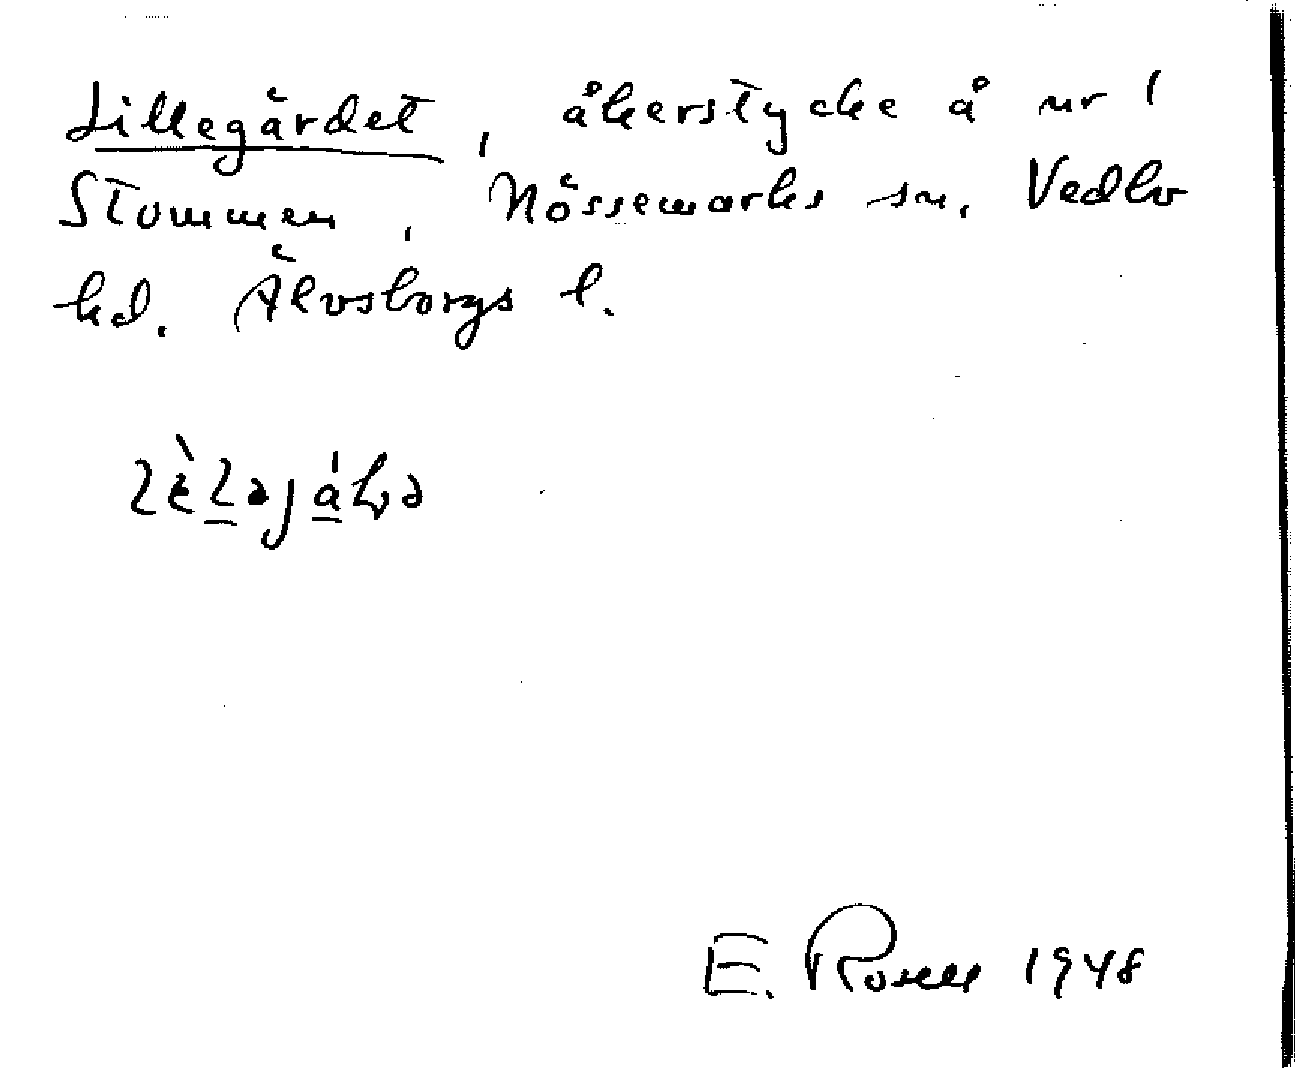 Lillegärdet, åkerstycke å nr 1
Stommen, Nössemarks sn. Vedbo
hd. Älvsborgs l.
E. Rosell 1948